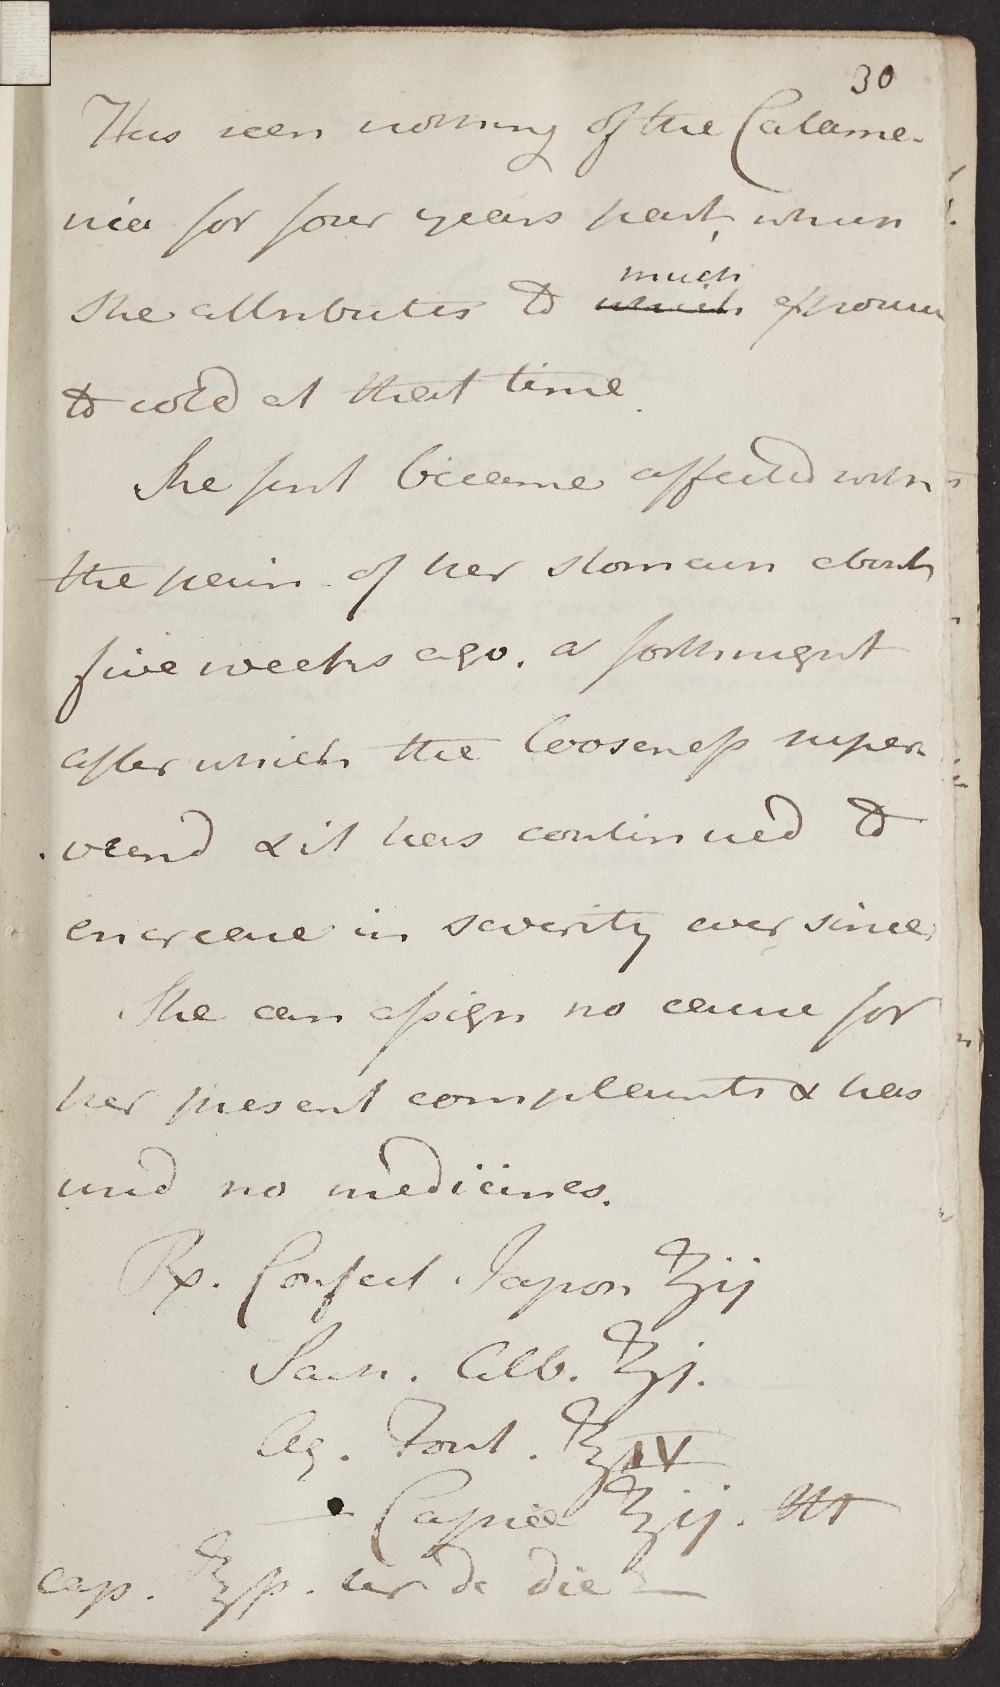 30
Has seen nothing of the Catame-
nia for four years past, which
She attributes to which much exposure
to cold at that time.
She first became affected with
the pain of her stomach about
five weeks ago. a fortnight
after which the looseness super
vened & it has continued to
encrease in severity ever since.
She can assign no cause for
her present complaints & has
used no medicines.
Rx. Confect. Japon ʒij
Sach. Alb. ʒj.
Aq. Font. ℥IV
— Cassiæ ℥ij. M
cap. ℥ss. ter de die